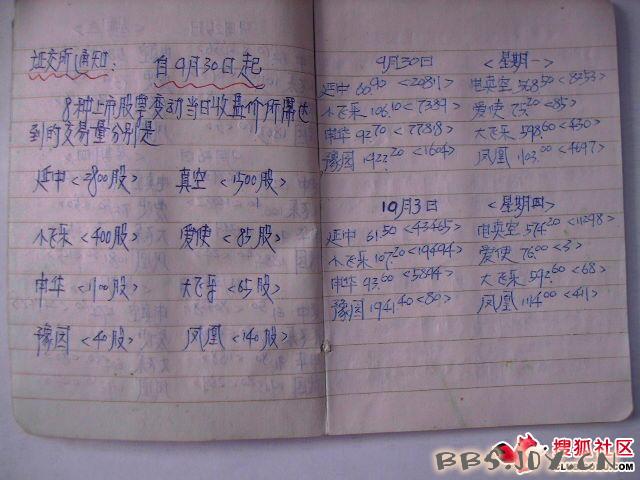 证交所通知: 自9月30日起
8种上市股票变动当日收盘价所需达
到的交易量分别是
延中 <2800股> 真空 <1500股>
小飞乐 <400股> 爱使 <85股>
申华 <1100股> 大飞乐 <65股>
豫园 <40股> 凤凰 <140股>
9月30日 <星期一>
延中 60.90 <20811> 电真空 568.50 <8253>
小飞乐 106.10 <7389> 爱使 75.20 <85>
申华 92.70 <77818> 大飞乐 598.60 <430>
豫园 1922.20 <1604> 凤凰 1103.00 <4697>
10月3日 <星期四>
延中 61.50 <43465> 电真空 574.20 <11298>
小飞乐 107.20 <19494> 爱使 76.00 <3>
申华 93.60 <5844> 大飞乐 592.60 <68>
豫园 1941.40 <80> 凤凰 1114.00 <411>
搜狐社区
BBS.JOY.CN